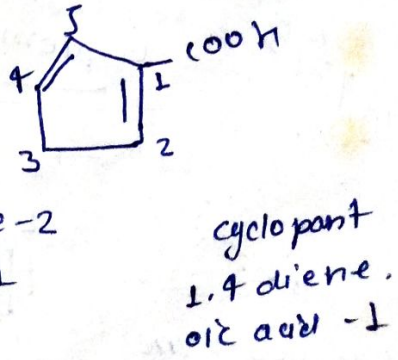 5
COOH
4
1
3
2
e-2
cyclo pant
1.4 diene.
oic acid -1